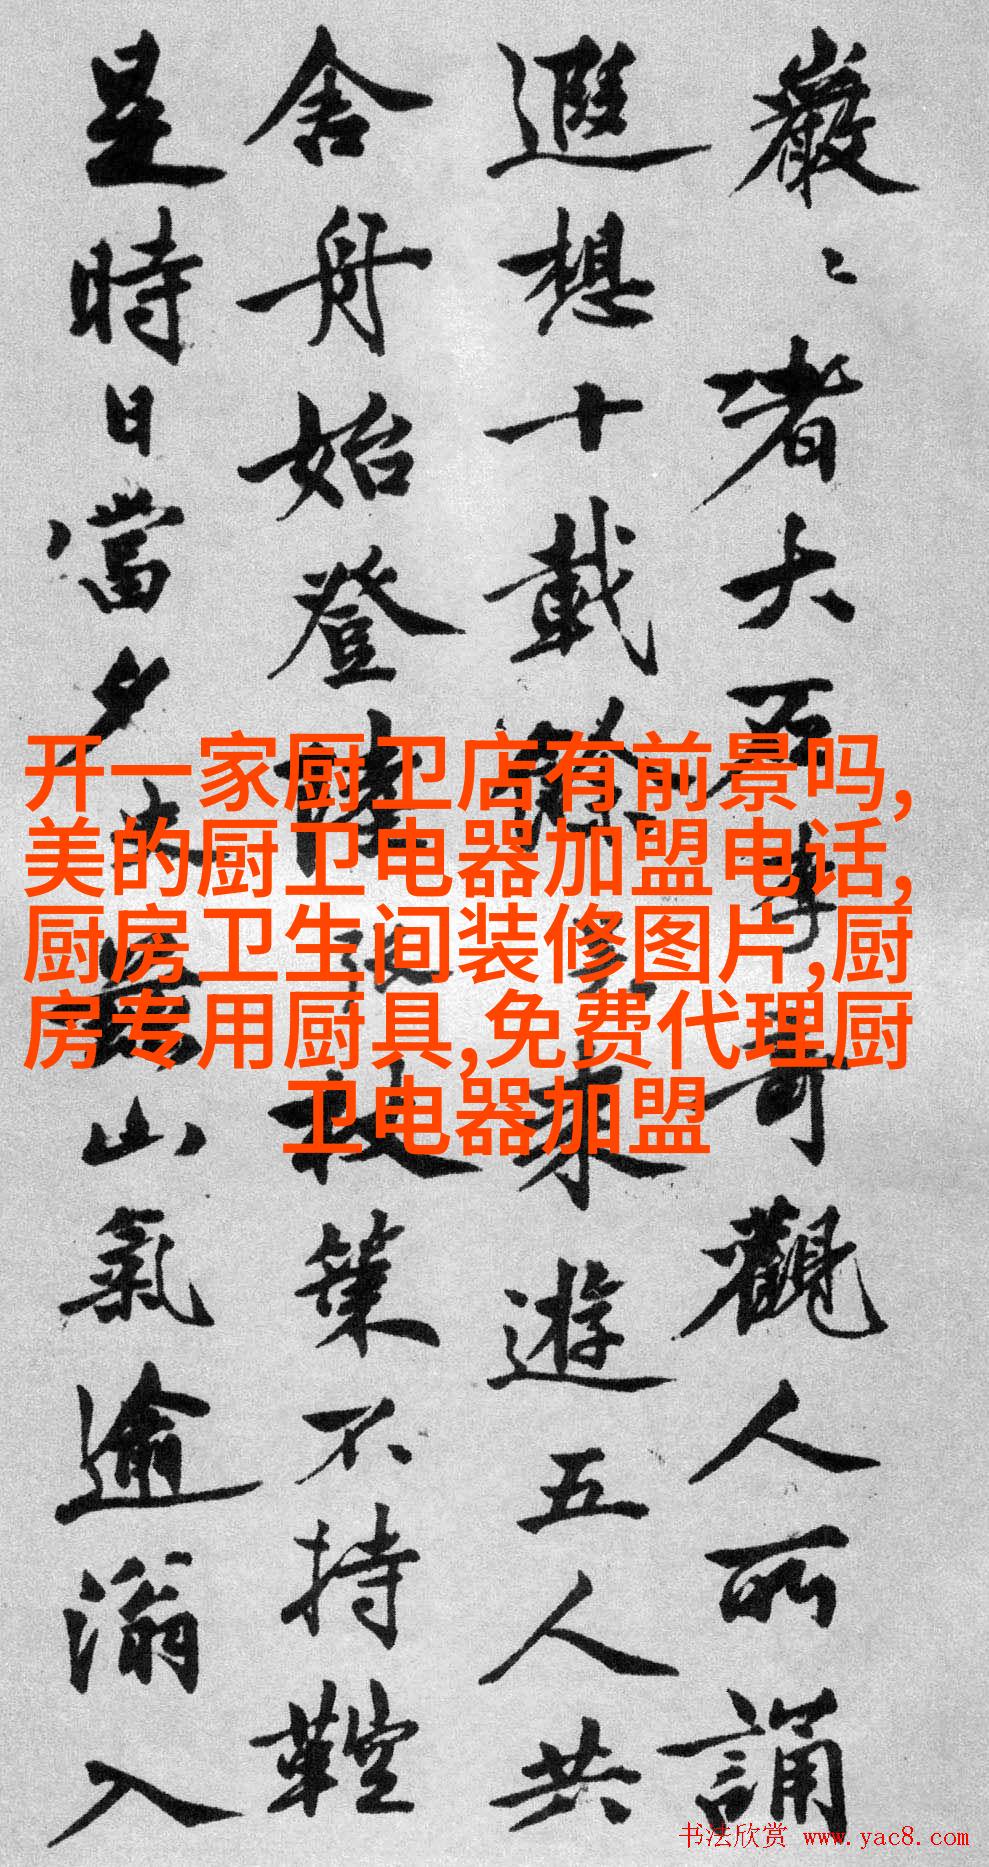 巖〻者大
哥觀人所誦
遐想十載
遊五人共
舍舟始登
策不持鞚
是時日當夕
山氣逾滃入
开一家厨卫店有前景吗,
美的厨卫电器加盟电话,
厨房卫生间装修图片,厨
房专用厨具,免费代理厨
卫电器加盟
书法欣赏 www.yac8.com